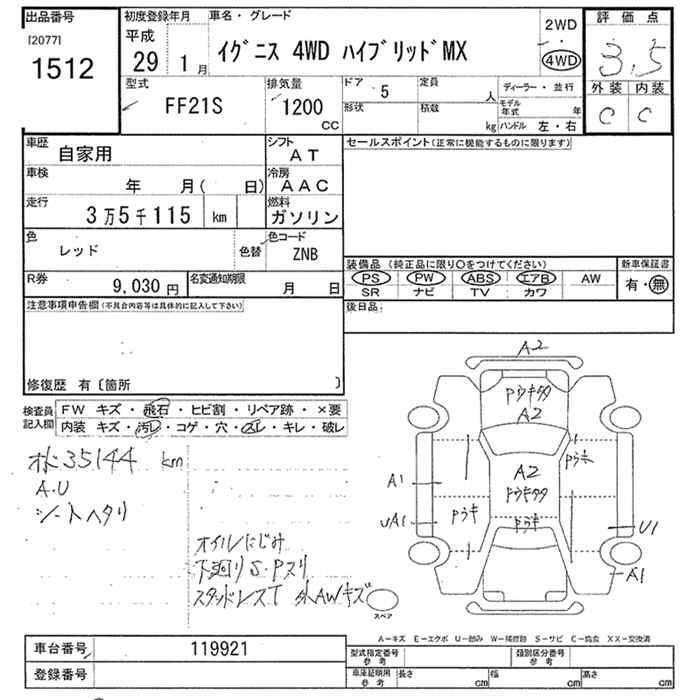 出品番号
[2077]
1512
初度登録年月
平成
29 1 月
車名・グレード
イグニス 4WD ハイブリッドMX
2WD
4WD
評価点
3.5
外装 内装
C C
型式
FF21S
排気量
1200
CC
ドア 5
定員 人
形状
積載 kg
ディーラー・並行
モデル年式 年
ハンドル 左・右
車歴
自家用
シフト
AT
車検
年 月( 日)
冷房
AAC
走行
3万5千115 km
燃料
ガソリン
色
レッド
色替
色コード
ZNB
R券
9,030 円
名変通知期限
月 日
セールスポイント(正常に機能するものに限ります)
装備品 (純正品に限り〇をつけてください)
PS PW ABS エアB AW
SR ナビ TV カワ
新車保証書
有・無
後日品:
注意事項申告欄(不具合内容等は具体的に記入して下さい)
修復歴 有〔箇所 〕
検査員記入欄
FW キズ・飛石・ヒビ割・リペア跡・×要
内装 キズ・汚レ・コゲ・穴・スレ・キレ・破レ
35144 km
A.U
シートヘタリ
オイルにじみ
下廻りS.Pスリ
スタッドレスT 外AWキズ
スペア
A2
Pウキタタ
A2
Pウキ
A2
Pウキタタ
A1
UA1
Pウキ
Pウキ
U1
A1
A-キズ E-エクボ U-凹み W-補修跡 S-サビ C-腐食 XX-交換済
車台番号 119921
登録番号
型式指定番号 参考
類別区分番号 参考
車庫証明用 参考 長さ cm 幅 cm 高さ cm